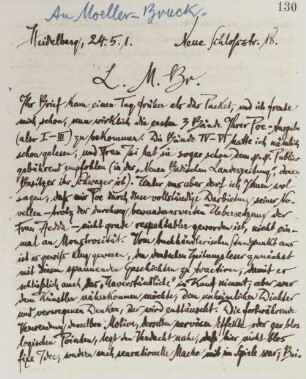 An Moeller-Bruck.
130
Heidelberg, 24.5.1. Neue Schloßstr. 18.
L. M. Br.
Ihr Brief kam einen Tag früher als das Packet, und ich freute
mich schon, nun wirklich die ersten 3 Bände Ihrer Poe-Ausgabe
(also I–III) zu bekommen. Die Bände IV–VI hatte ich nämlich
schon gelesen, und Frau hat sie sogar schon dem Publico
gebührend empfohlen (in der Neuen Badischen Landeszeitung, deren
Besitzer ihr Schwager ist). Unter uns aber darf ich Ihnen wol
sagen, daß mir Poe durch diese vollständige Darbietung seiner No-
vellen – trotz der durchweg bewundernswerten Uebersetzung der
Frau Hedda – nicht grade respektabler geworden ist, nicht ein-
mal an Monstrosität. Vom buchhändlerischen Standpunkt aus
ist es gewiß klug gewesen, den deutschen Zeitungsleser zunächst
mit diesen spannenden Geschichten zu tractiren, damit er
schließlich auch das Unverständliche in Kauf nimmt; aber wer
dem Künstler näherkommen möchte, dem unheimlichen Dichter
und verwegenen Denker, der wird enttäuscht. Die fortwährende
Verwendung derselben Motive, derselben nervösen Effekte oder gar blos
logischen Pointen, legt den Verdacht nahe, daß hier nicht blos
fixe Idee, sondern auch sensationelle Mache mit im Spiele war. Bei